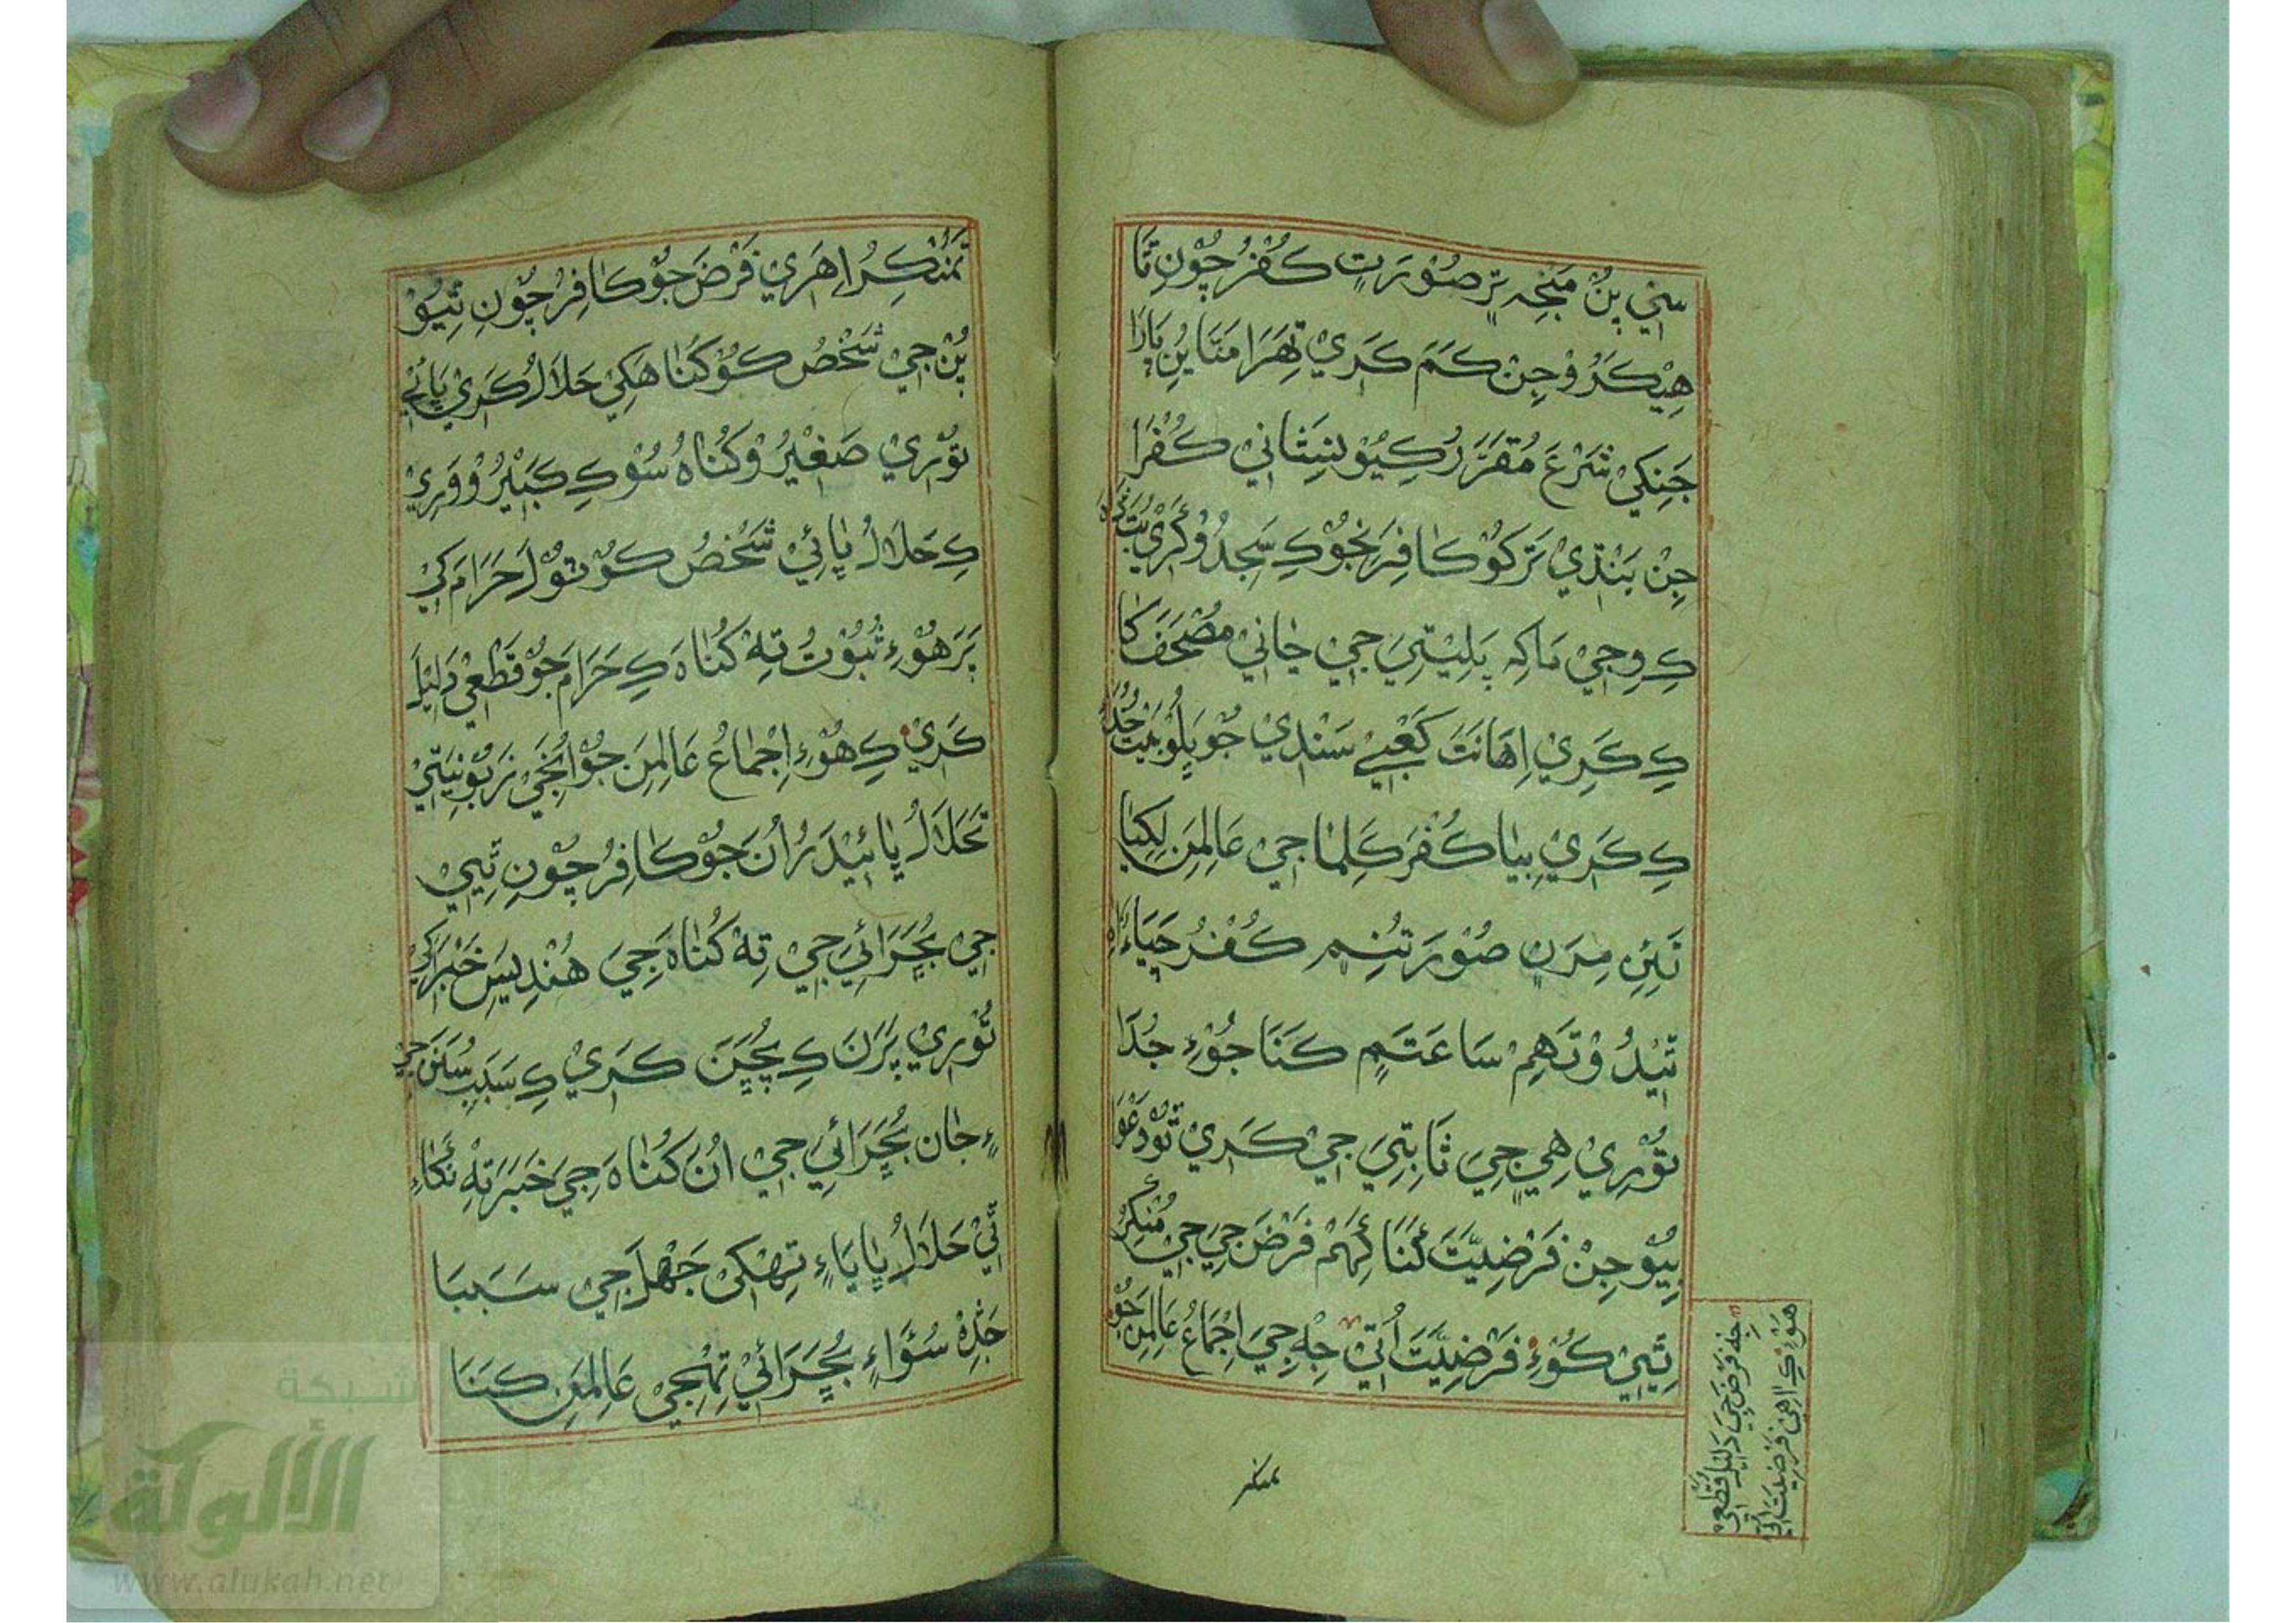 سڀي پن منجہ پر صُوْرَتِ كُفْرُ چُوْنِ تَا
هِيْكَرُوْ جِنْ كَمَ كَرِيْ تِهَرَا مَتَا پُنِ پَارَا
جَنِكِيْ شَرْعَ مُقَرَّرْ كِيُوْ نِشَانِيْ كُفْرَا
جِنْ بَنْدِيْ تَرَكُوْ كَافِرَنِجُوْ كِ سَجِدُوْ كَرِيْ بُتَ
كِ وِجِيْ مَاكِہ پَلِيْتِيَ جِيْ جَانِيْ مُصْحَفَ كَا
كِ كَرِيْ اِهَانَتَ كَعْبِيْ سَنْدِيْ جُوْ پِلُوْ بَيْتُ خُدَا
كِ كَرِيْ بِيَا كُفْرَ كَلِمَا جِيْ عَالِمَنِ لِكِيَا
تَنِنِ مِرَنِ صُوْرَتُنِمِ كُفْرُ چَيَاءُ
تِيْدُوْ تَهِمْ سَاعَتَمِ كَنَا جُوْءِ جُدَا
تُوْرِيْ هِيْ جِيَ ثَابِتِيَ جِيْ كَرِيْ تُوْ دَعْوَا
بِيُوْ جِنْ فَرْضِيَّتَ كَنَا كِهَمْ فَرْضَ جِيَ جِيْ مُنْكِرُ
تِيِيْ كُوْءِ فَرْضِيَّتَ اُتِيْ جِہ جِيَ اِجْمَاعُ عَالِمَنِ جُوْ
جِہ فَرْضَ جِيَ دَلِيْلَ قَطْعِيْ
هُوْءِ كِ اِهِيْ فَرْضِيَّتَ اُتِيْ
تمنكر
تَمُنْكِرُ اِهَرِيْ فَرْضَ جُوْ كَافِرُ چُوْنِ تِيُوْ
پُنْ جِيْ شَخْصُ كُوْ كُنَاهَكِيْ حَلَالُ كَرِيْ پَانْجِ
تُوْرِيْ صَغِيْرُ وْ كُنَاهُ سُوْ كِ كَبِيْرُ وْ وَرِيْ
كِ حَلَالُ پَائِيْ شَخْصُ كُوْ تُوْلَ حَرَامَ كِيْ
پَرَ هُوْءِ ثُبُوْتُ تِہ كُنَاهَ كِ حَرَامَ جُوْ قَطْعِيْ دَلِيْلَ
كَرِيْ كِ هُوْءِ اِجْمَاعُ عَالِمَنِ جُوْ اُنْجَيْ زَبُوْنِيَتِيْ
تَحَلَالُ پَائِيْدَرُ اُنَ جُوْ كَافِرُ چُوْنِ تِيِيْ
جِيْ بُچَرَائِيَ جِيْ تِہ كُنَاهَ جِيَ هُنْدِيَسِ خَبَرَ كِيْ
تُوْرِيْ پَرَنَ كِ پُچَنَ كَرِيْ كِ سَبَبِ سُنَنَ جِيْ
ءِ جَانِ بُچَرَائِيَ جِيْ اُنَ كُنَاهَ جِيَ خَبَرَ تِہ نَكَاءِ
تِيْ حَلَالُ پَايَاءِ تِهِكِيْ جَهْلَ جِيْ سَبَبَا
جَدِہ سُؤَاءِ بُچَرَائِيْ تِهِجِيْ عَالِمَنِ كَنَا
شبكة
الألوكة
www.alukah.net